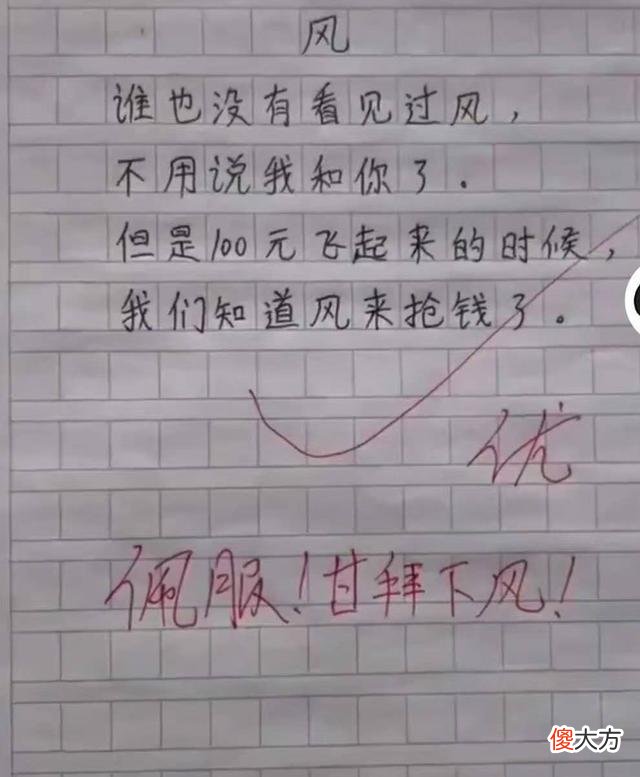 风
谁也没有看见过风，
不用说我和你了．
但是100元飞起来的时候，
我们知道风来抢钱了。
优
佩服！甘拜下风！
傻大方